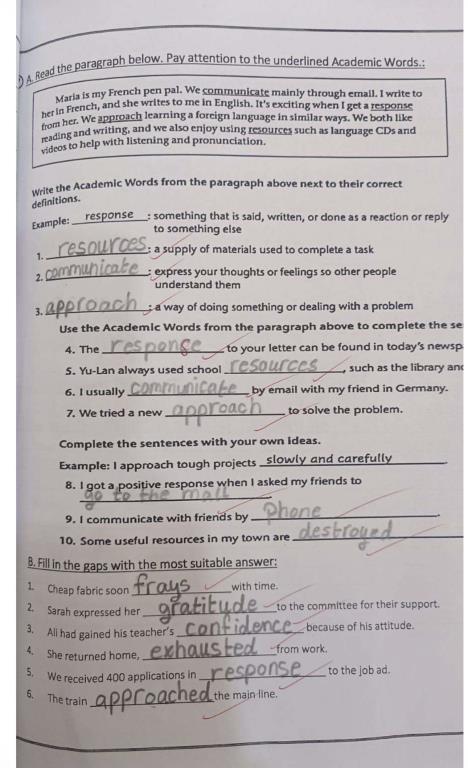 A. Read the paragraph below. Pay attention to the underlined Academic Words.:
Maria is my French pen pal. We communicate mainly through email. I write to
her in French, and she writes to me in English. It's exciting when I get a response
from her. We approach learning a foreign language in similar ways. We both like
reading and writing, and we also enjoy using resources such as language CDs and
videos to help with listening and pronunciation.
Write the Academic Words from the paragraph above next to their correct
definitions.
Example: response : something that is said, written, or done as a reaction or reply
to something else
1. resources : a supply of materials used to complete a task
2. communicate : express your thoughts or feelings so other people
understand them
3. approach : a way of doing something or dealing with a problem
Use the Academic Words from the paragraph above to complete the se
4. The response to your letter can be found in today's newsp
5. Yu-Lan always used school resources, such as the library and
6. I usually communicate by email with my friend in Germany.
7. We tried a new approach to solve the problem.
Complete the sentences with your own ideas.
Example: I approach tough projects slowly and carefully.
8. I got a positive response when I asked my friends to
go to the mall
9. I communicate with friends by Phone.
10. Some useful resources in my town are destroyed
B. Fill in the gaps with the most suitable answer:
1. Cheap fabric soon frays with time.
2. Sarah expressed her gratitude to the committee for their support.
3. Ali had gained his teacher's confidence because of his attitude.
4. She returned home, exhausted from work.
5. We received 400 applications in response to the job ad.
6. The train approached the main line.